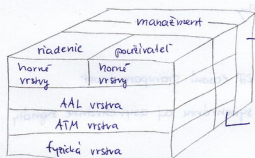 manažment
riadenie používateľ
horné vrstvy horné vrstvy
AAL vrstva
ATM vrstva
fyzická vrstva